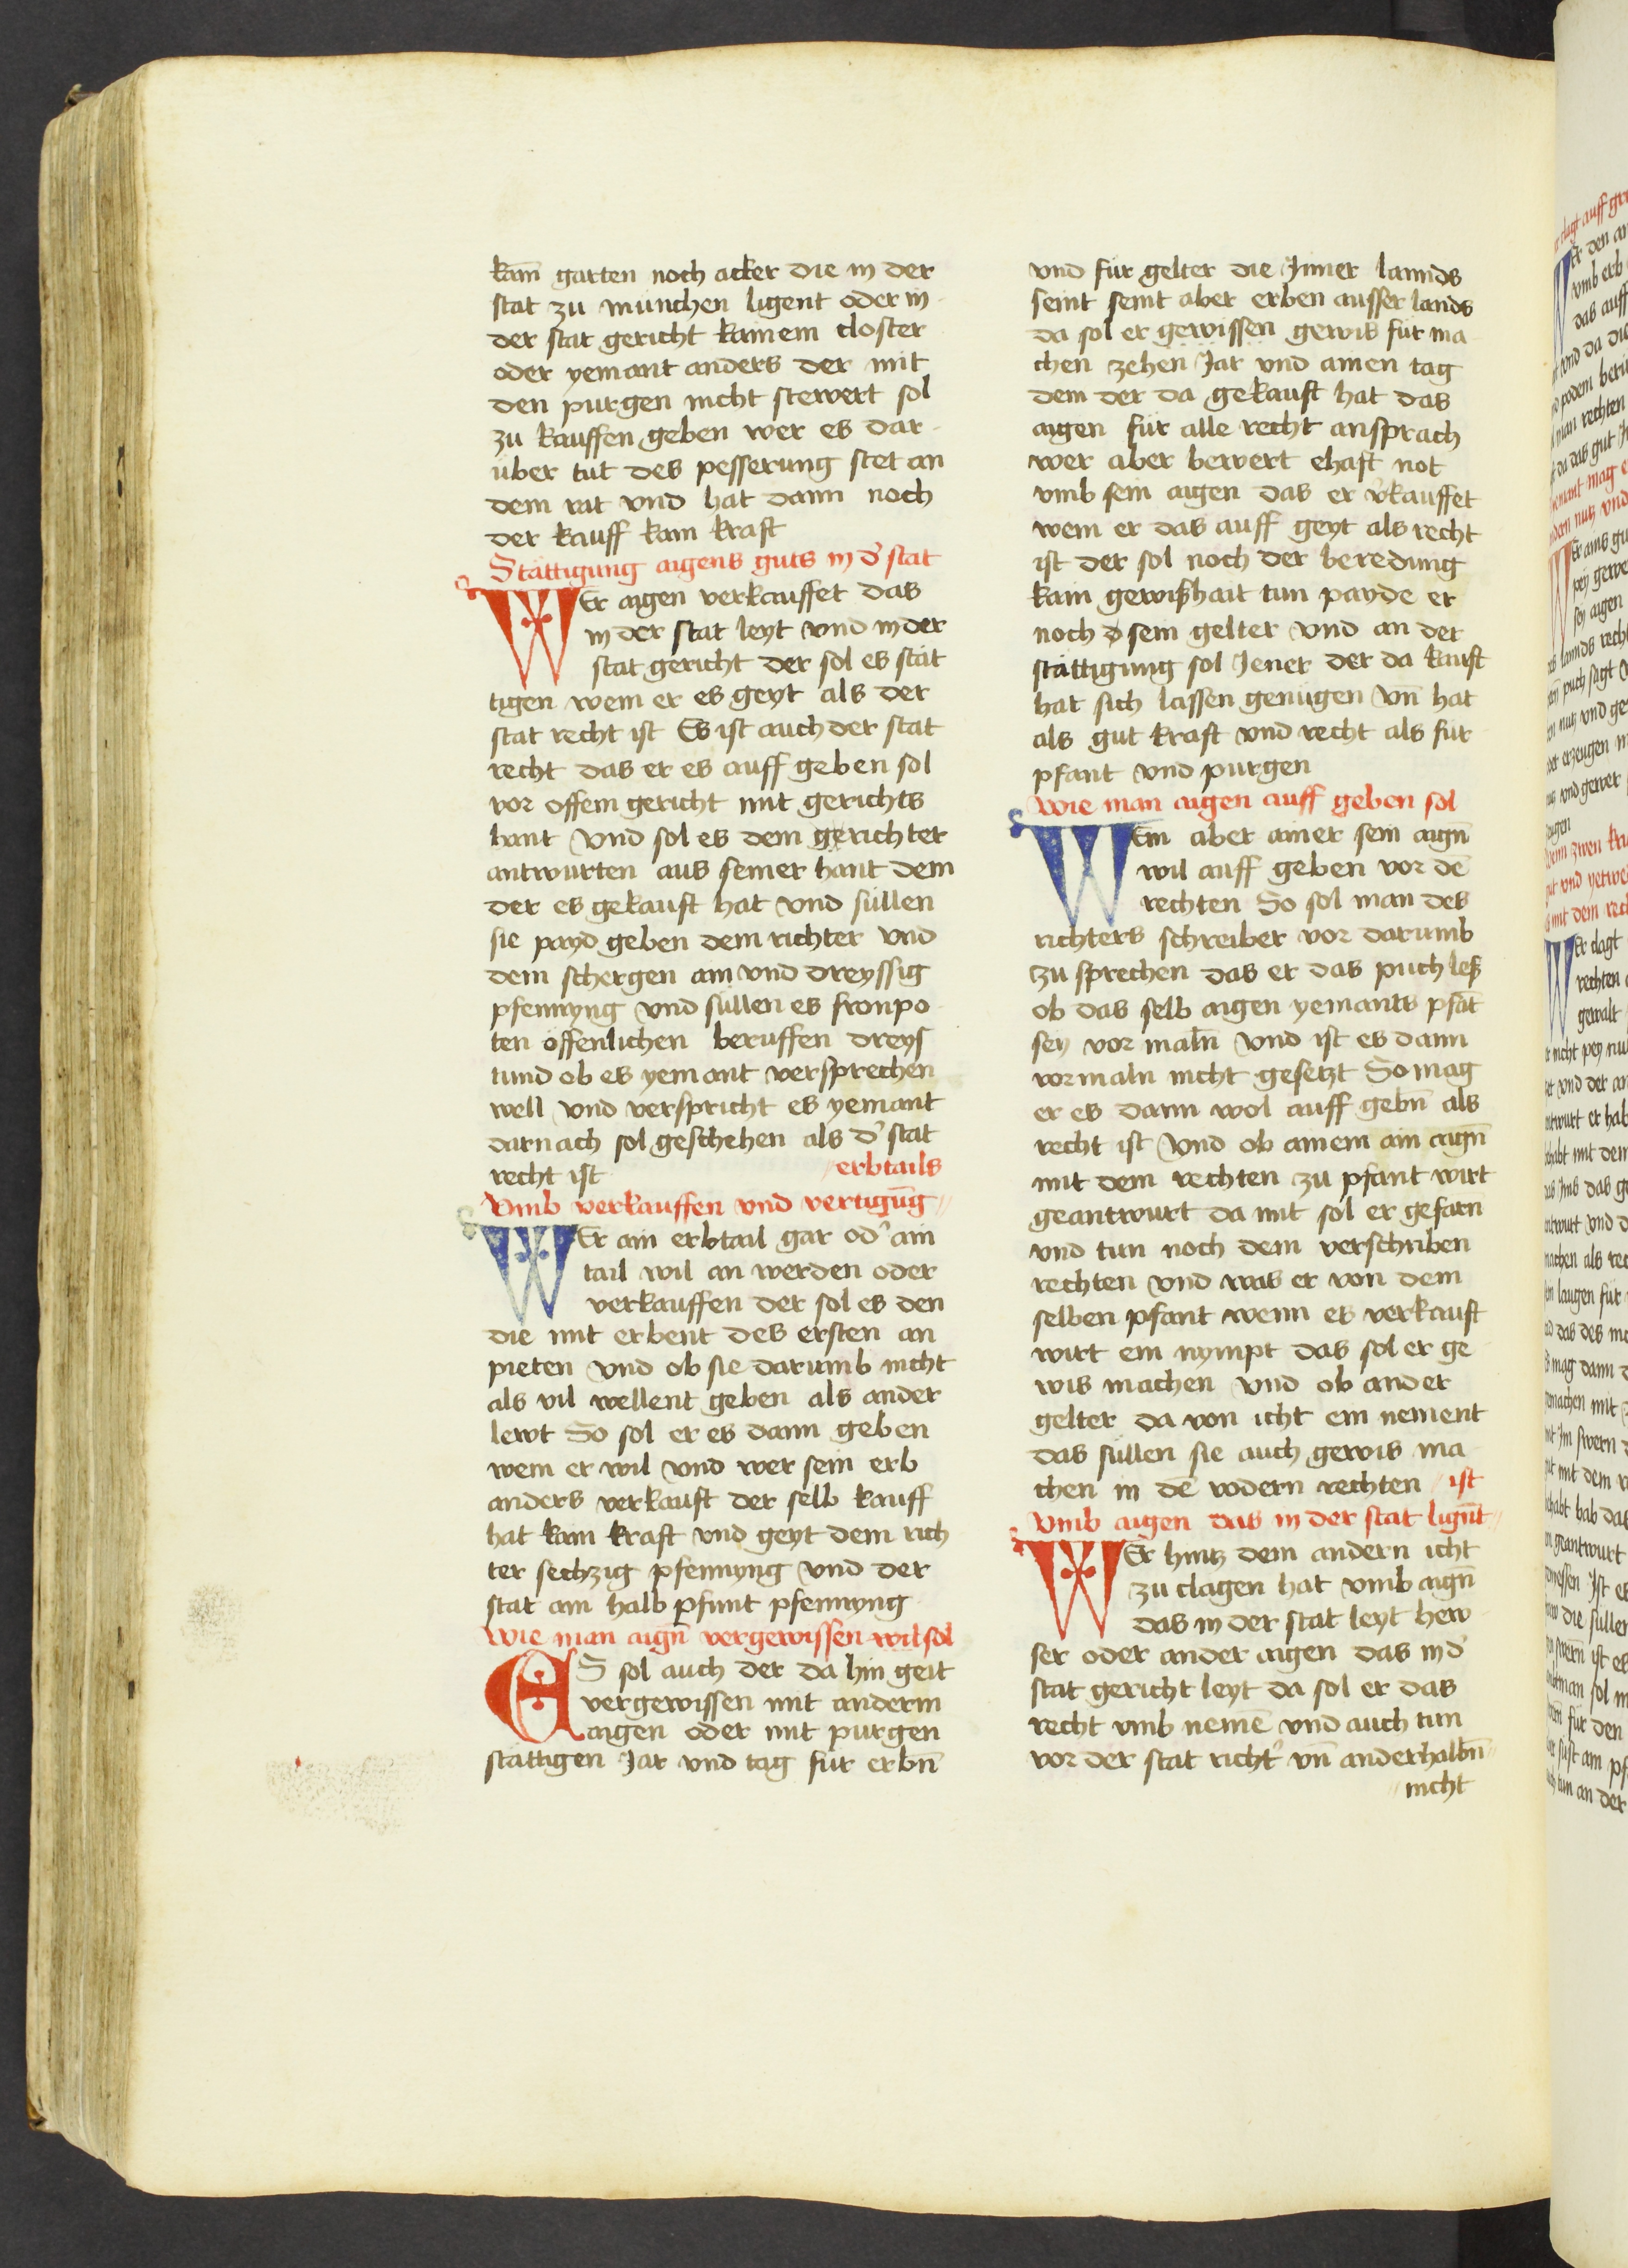 kain̄ garten noch acker die in der
stat zu münchen ligent oder in
der stat gericht kainem closter
oder yemant anders der mit
den purgen nicht stewert sol
zu kauffen geben wer es dar-
über tut des pesserung stet an
dem rat vnd hat dann noch
der kauff kain kraft
Stättigung aigens guts in d' stat
WEr aigen verkauffet das
in der stat leyt vnd in der
stat gericht der sol es stät
tigen wem er es geyt als der
stat recht ist Es ist auch der stat
recht das er es auff geben sol
vor offem gericht mit gerichts
hant vnd sol es dem gerichter
antwurten aus seiner hant dem
der es gekauft hat vnd süllen
sie payd geben dem richter vnd
dem schergen ain vnd dreyssig
pfennyng vnd süllen es fronpo
ten offenlichen beruffen dreys
tund ob es yemant versprechen
well vnd verspricht es yemant
darnach sol geschehen als d' stat
recht ist
erbtails
Vmb verkauffen vnd vertigūg
WEr ain erbtail gar od' ain
tail wil an werden oder
verkauffen der sol es den
die mit erbent des ersten an
pieten vnd ob sie darumb nicht
als vil wellent geben als ander
lewt So sol er es dann geben
wem er wil vnd wer sein erb
anders verkauft der selb kauff
hat kain kraft vnd geyt dem rich
ter sechzig pfennyng vnd der
stat ain halb pfunt pfennyng
Wie man aign̄ vergewissen wil sol
ES sol auch der da hin geit
vergewissen mit anderm
aigen oder mit purgen
stättigen Jar vnd tag für erbn̄
vnd für gelter die Inner lannds
seint seint aber erben ausser lands
da sol er gewissen gewis für ma
chen zehen Jar vnd ainen tag
dem der da gekauft hat das
aigen für alle recht ansprach
wer aber bewert ehaft not
vmb sein aigen das er v'kauffet
wem er das auff geyt als recht
ist der sol noch der beredung
kain gewißhait tun payde er
noch sein gelter vnd an der
stättigung sol Jener der da kauft
hat sich lassen genügen vn̄ hat
als gut kraft vnd recht als für
pfant vnd purgen
Wie man aigen auff geben sol
WEm aber ainer sein aign̄
wil auff geben vor dē
rechten So sol man des
richters schreiber vor darumb
zu sprechen das er das puch leß
ob das selb aigen yemants pfāt
sey vor maln̄ vnd ist es dann
vormaln nicht gesetzt So mag
er es dann wol auff gebn̄ als
recht ist vnd ob ainem ain aign̄
mit dem rechten zu pfant wirt
geantwurt da mit sol er gefarn
vnd tun noch dem verschriben
rechten vnd was er von dem
selben pfant wenn es verkauft
wirt ein nympt das sol er ge
wis machen vnd ob ander
gelter da von icht ein nement
das süllen sie auch gewis ma
chen in dē vodern rechten
ist
Vmb aigen das in der stat lign̄t
WEr hintz dem andern icht
zu clagen hat vmb aign̄
das in der stat leyt hew
ser oder ander aigen das in d'
stat gericht leyt da sol er das
recht vmb nemē vnd auch tun
vor der stat richt' vn̄ anderhalbn̄
nicht